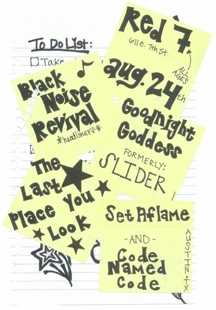 To Do List:
Take
Red 7
611 E. 7th St.
ALL AGES
aug. 24th
Black
Noise
Revival
*headliner*
Goodnight
Goddess
FORMERLY:
SLIDER
The
Last
Place You
Look
Set Aflame
-AND-
Code
Named
Code
AUSTIN, TX